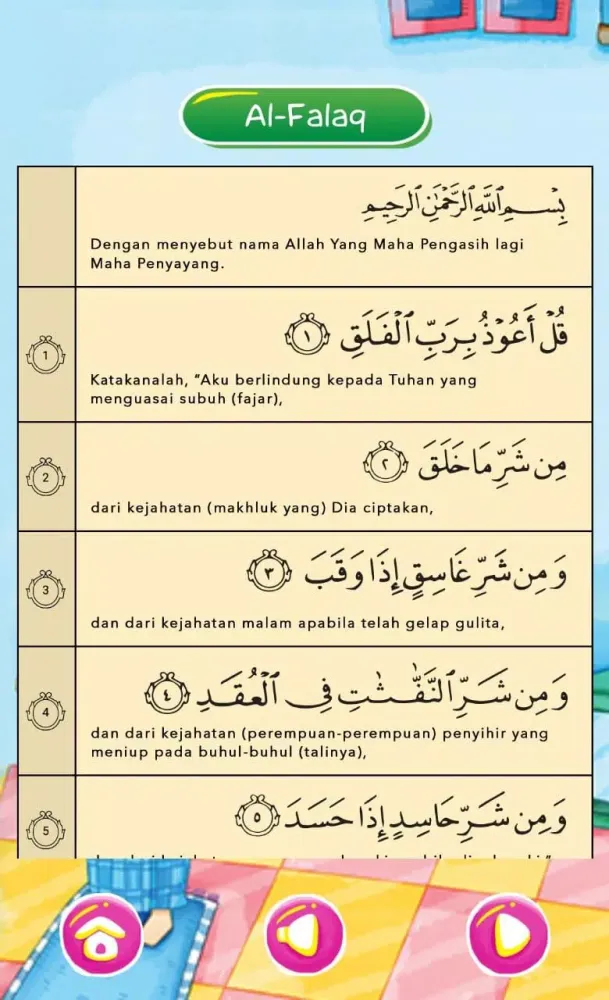 Al-Falaq
بِسْمِ ٱللَّهِ ٱلرَّحْمَٰنِ ٱلرَّحِيمِ
Dengan menyebut nama Allah Yang Maha Pengasih lagi
Maha Penyayang.
1
قُلْ أَعُوْذُ بِرَبِّ ٱلْفَلَقِ ١
Katakanalah, "Aku berlindung kepada Tuhan yang
menguasai subuh (fajar),
2
مِن شَرِّ مَا خَلَقَ ٢
dari kejahatan (makhluk yang) Dia ciptakan,
3
وَمِن شَرِّ غَاسِقٍ إِذَا وَقَبَ ٣
dan dari kejahatan malam apabila telah gelap gulita,
4
وَمِن شَرِّ ٱلنَّفَّٰثَٰتِ فِى ٱلْعُقَدِ ٤
dan dari kejahatan (perempuan-perempuan) penyihir yang
meniup pada buhul-buhul (talinya),
5
وَمِن شَرِّ حَاسِدٍ إِذَا حَسَدَ ٥